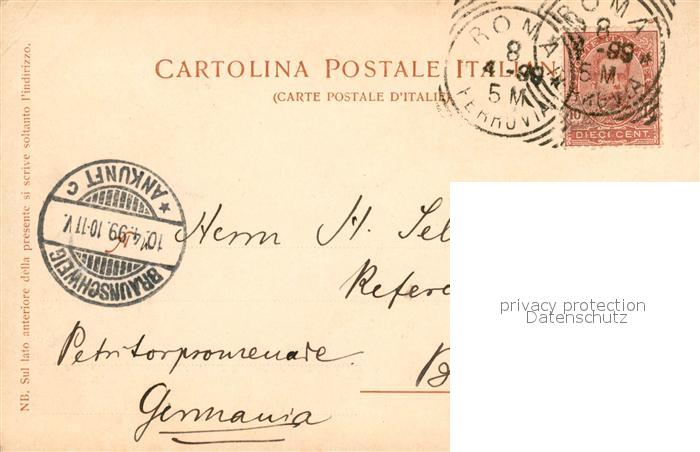 CARTOLINA POSTALE ITALIAN
(CARTE POSTALE D'ITALIE
NB. Sul lato anteriore della presente si scrive soltanto l'indirizzo.
ROMA
8
4-99
5 M
FERROVIA
ROMA
8
-99
5 M
DIECI CENT.
BRAUNSCHWEIG
10.4.99.10-11V.
* ANKUNFT C
Herrn H. Sel
Refere
Petritorpromenade.
B
Germania
privacy protection
Datenschutz